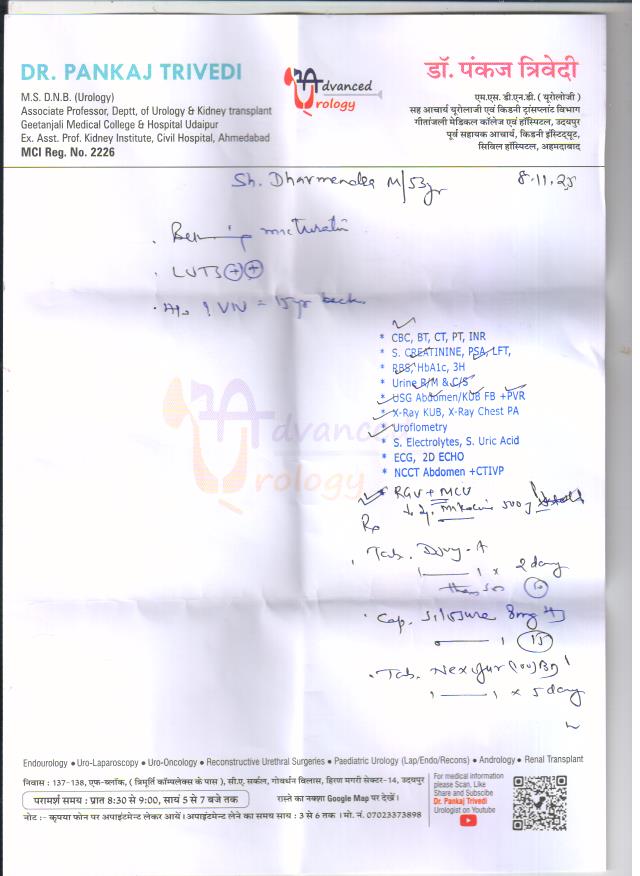 DR. PANKAJ TRIVEDI
M.S. D.N.B. (Urology)
Associate Professor, Deptt, of Urology & Kidney transplant
Geetanjali Medical College & Hospital Udaipur
Ex. Asst. Prof. Kidney Institute, Civil Hospital, Ahmedabad
MCI Reg. No. 2226
Advanced
Urology
डॉ. पंकज त्रिवेदी
एम.एस. डी.एन.बी. ( यूरोलोजी )
सह आचार्य यूरोलाजी एवं किडनी ट्रांसप्लांट विभाग
गीतांजली मेडिकल कॉलेज एवं हॉस्पिटल, उदयपुर
पूर्व सहायक आचार्य, किडनी इंस्टिट्यूट,
सिविल हॉस्पिटल, अहमदाबाद
Sh. Dharmendra M/53yr 8.11.25
micturation
LUTS ++
VIU = 15 yr back
* CBC, BT, CT, PT, INR
* S. CREATININE, PSA, LFT,
* RBS, HbA1c, 3H
* Urine R/M & C/S
* USG Abdomen/KUB FB +PVR
* X-Ray KUB, X-Ray Chest PA
* Uroflometry
* S. Electrolytes, S. Uric Acid
* ECG, 2D ECHO
* NCCT Abdomen +CTIVP
* RGU + MCU
500
Rx
Tab.
1 1 x 2 day
then sos
Cap. Silosure 8mg
1 15
Tab. (100) BD
1 1 x 5 day
Advanced
Urology
Endourology • Uro-Laparoscopy • Uro-Oncology • Reconstructive Urethral Surgeries • Paediatric Urology (Lap/Endo/Recons) • Andrology • Renal Transplant
निवास : 137-138, एफ-ब्लॉक, ( त्रिमूर्ति कॉम्पलेक्स के पास ), सी.ए. सर्कल, गोवर्धन विलास, हिरण मगरी सेक्टर-14, उदयपुर
परामर्श समय : प्रात 8:30 से 9:00, सायं 5 से 7 बजे तक रास्ते का नक्शा Google Map पर देखें।
नोट :- कृपया फोन पर अपाइंटमेन्ट लेकर आयें। अपाइंटमेन्ट लेने का समय साय : 3 से 6 तक । मो. नं. 07023373898
For medical information
please Scan, Like
Share and Subscibe
Dr. Pankaj Trivedi
Urologist on Youtube